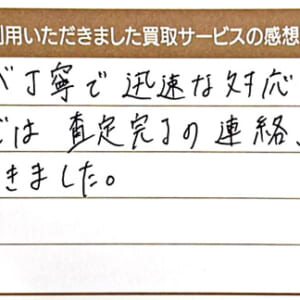 用いただきました買取サービスの感想
丁寧で迅速な対応
は査定完了の連絡、
きました。